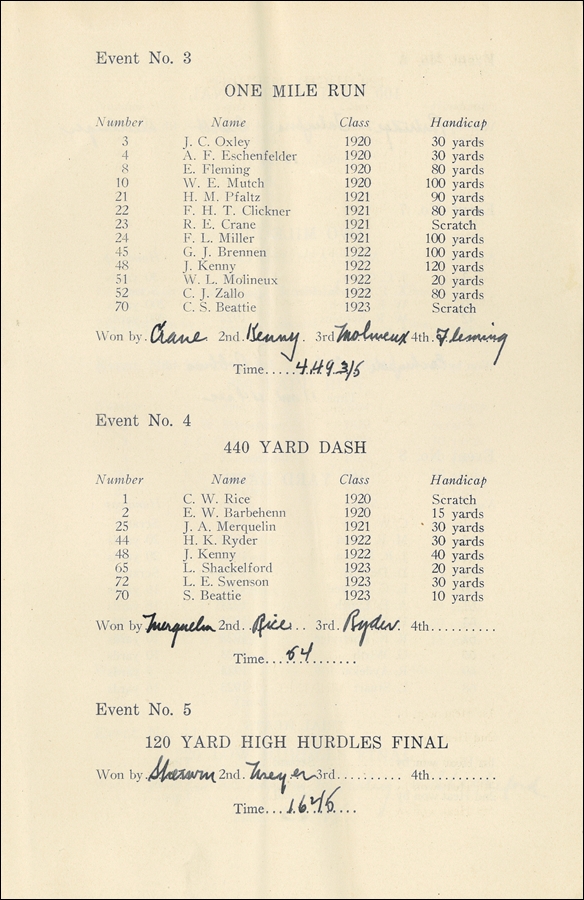 Event No. 3
ONE MILE RUN
Number Name Class Handicap
3 J. C. Oxley 1920 30 yards
4 A. F. Eschenfelder 1920 30 yards
8 E. Fleming 1920 80 yards
10 W. E. Mutch 1920 100 yards
21 H. M. Pfaltz 1921 90 yards
22 F. H. T. Clickner 1921 80 yards
23 R. E. Crane 1921 Scratch
24 F. L. Miller 1921 100 yards
45 G. J. Brennen 1922 100 yards
48 J. Kenny 1922 120 yards
51 W. L. Molineux 1922 20 yards
52 C. J. Zallo 1922 80 yards
70 C. S. Beattie 1923 Scratch
Won by. Crane 2nd. Kenny. 3rd Molineux 4th. Fleming
Time..... 4.49 3/5
Event No. 4
440 YARD DASH
Number Name Class Handicap
1 C. W. Rice 1920 Scratch
2 E. W. Barbehenn 1920 15 yards
25 J. A. Merquelin 1921 30 yards
44 H. K. Ryder 1922 30 yards
48 J. Kenny 1922 40 yards
65 L. Shackelford 1923 20 yards
72 L. E. Swenson 1923 30 yards
70 S. Beattie 1923 10 yards
Won by Merquelin 2nd.. Rice.. 3rd. Ryder. 4th..........
Time... 54 .......
Event No. 5
120 YARD HIGH HURDLES FINAL
Won by 2nd. Meyer 3rd.......... 4th..........
Time....